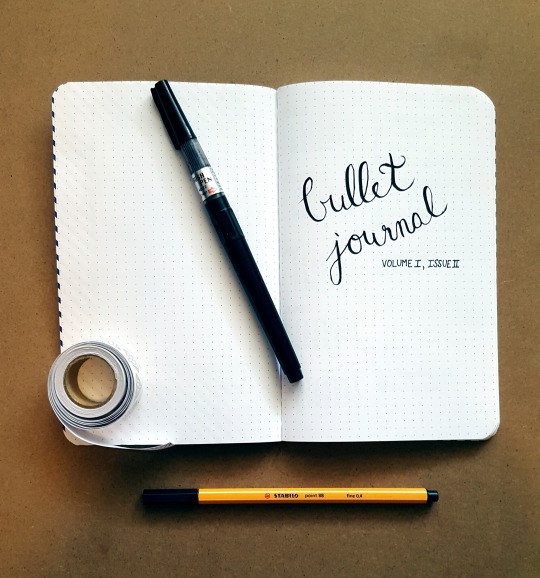 bullet
journal
VOLUME I, ISSUE II
PEN
STABILO point 88 fine 0,4